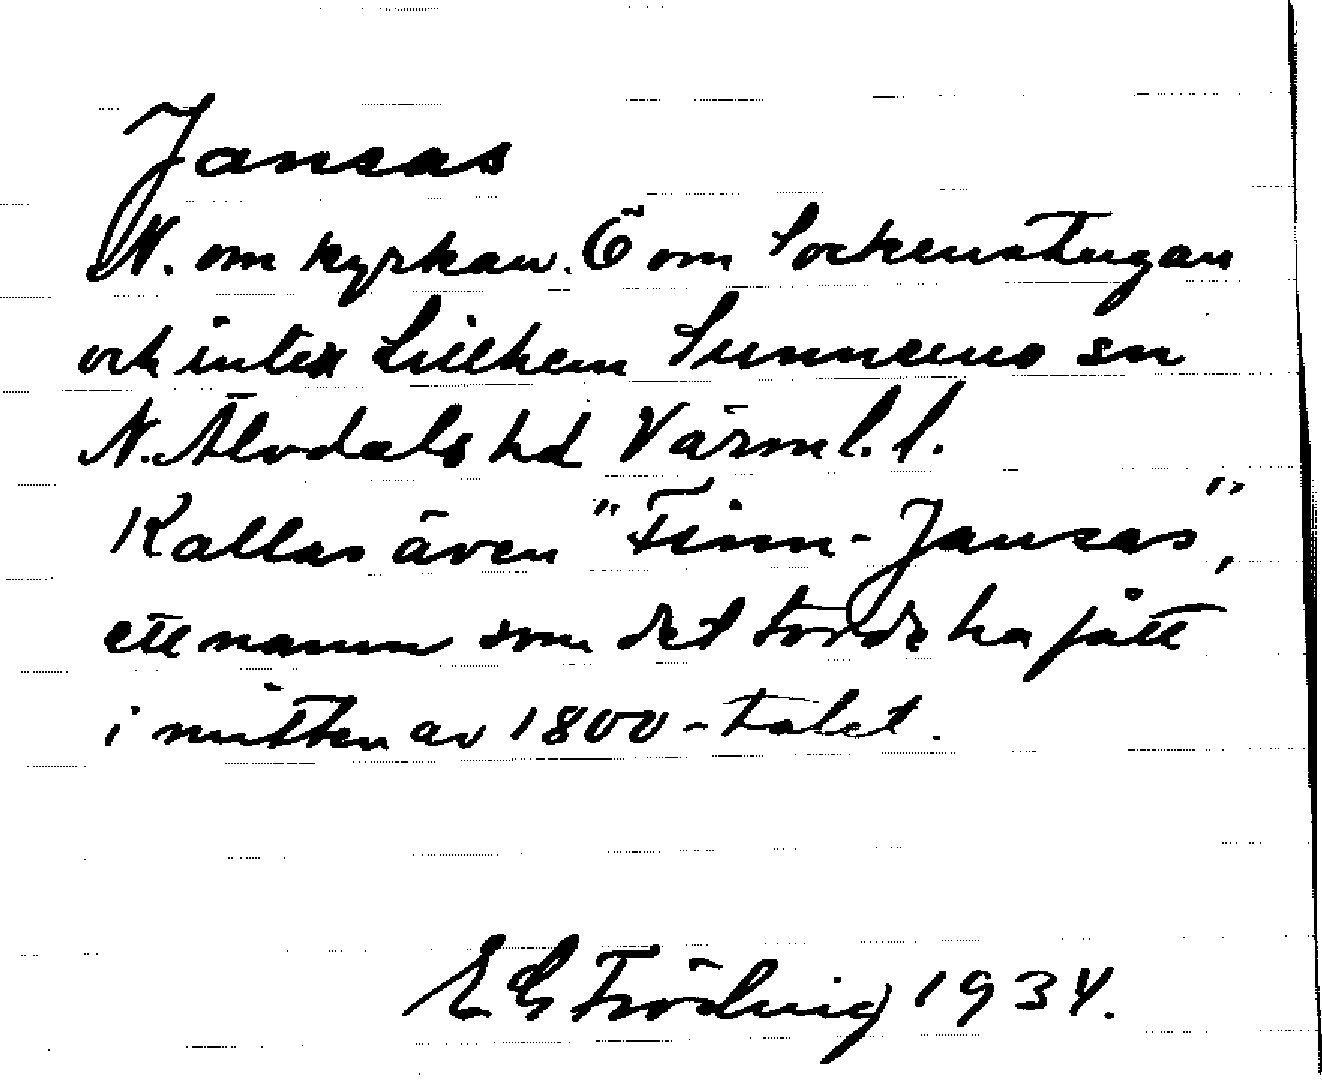 Jansas
N. om kyrkan. Ö om Sockenstugan
och intex Lillhem Sunnemo sn
N. Älvdals hd Värml. l.
Kallas även "Finn-Jansas",
ett namn som det torde ha fått
i mitten av 1800-talet.
E G Frödvig 1934.